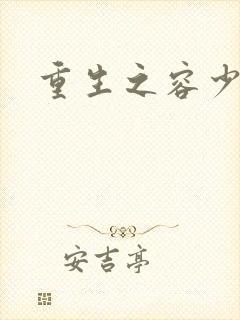 重生之容少
安吉亭